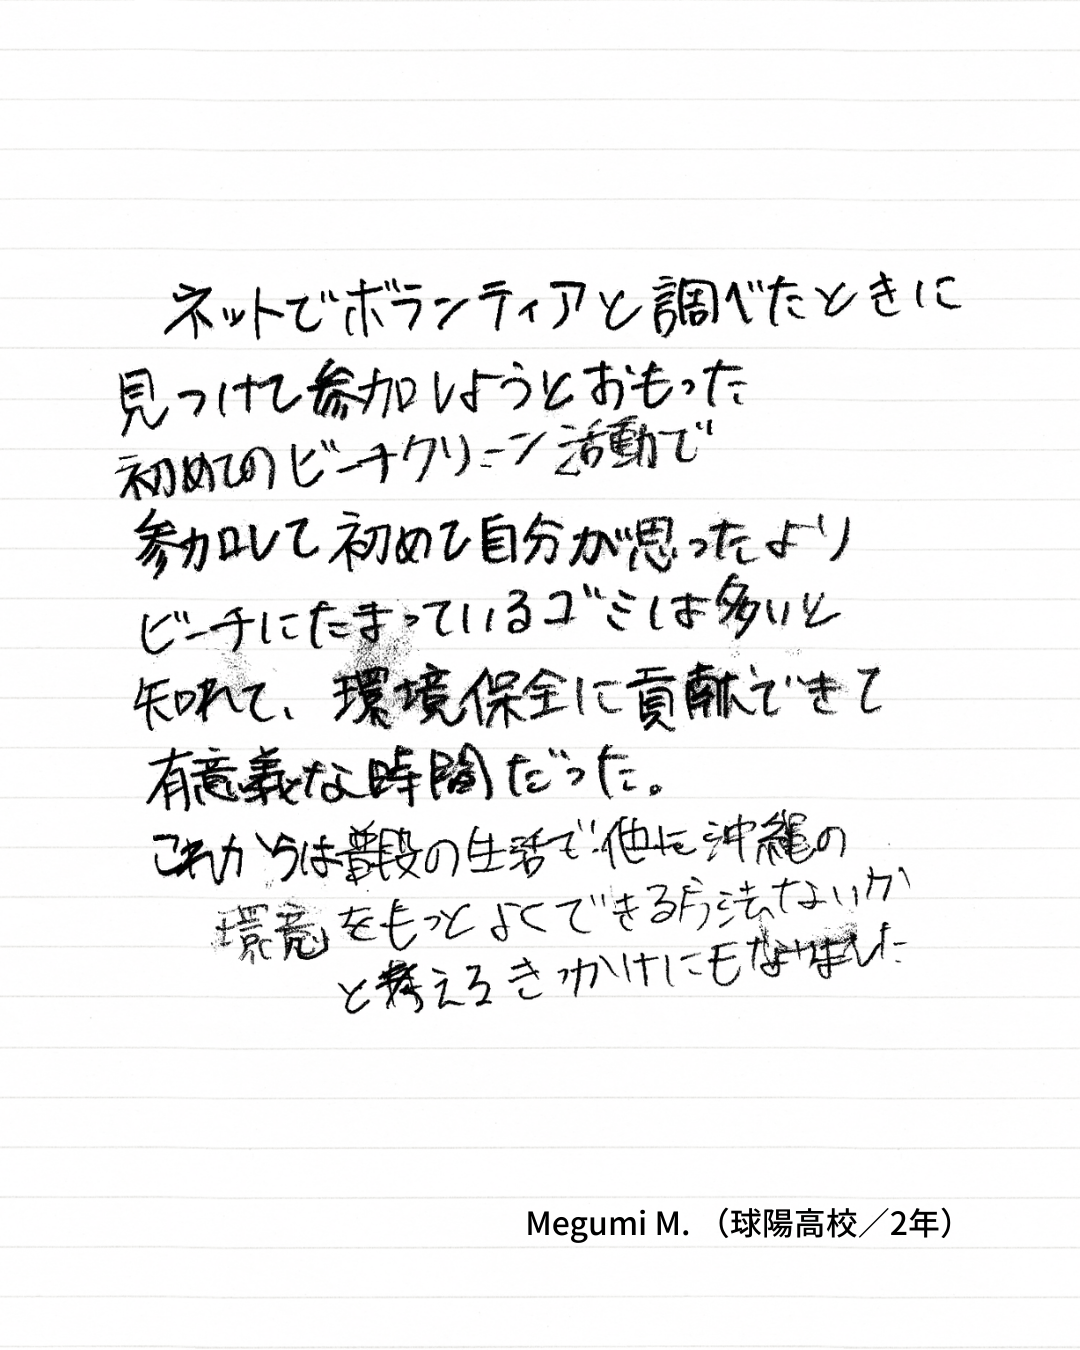 ネットでボランティアと調べたときに
見つけて参加しようとおもった
初めてのビーチクリーン活動で
参加して初めて自分が思ったより
ビーチにたまっているゴミは多いと
知れて、環境保全に貢献できて
有意義な時間だった。
これからは普段の生活で他に沖縄の
環境をもっとよくできる方法ないか
と考えるきっかけにもなりました
Megumi M. （球陽高校／2年）